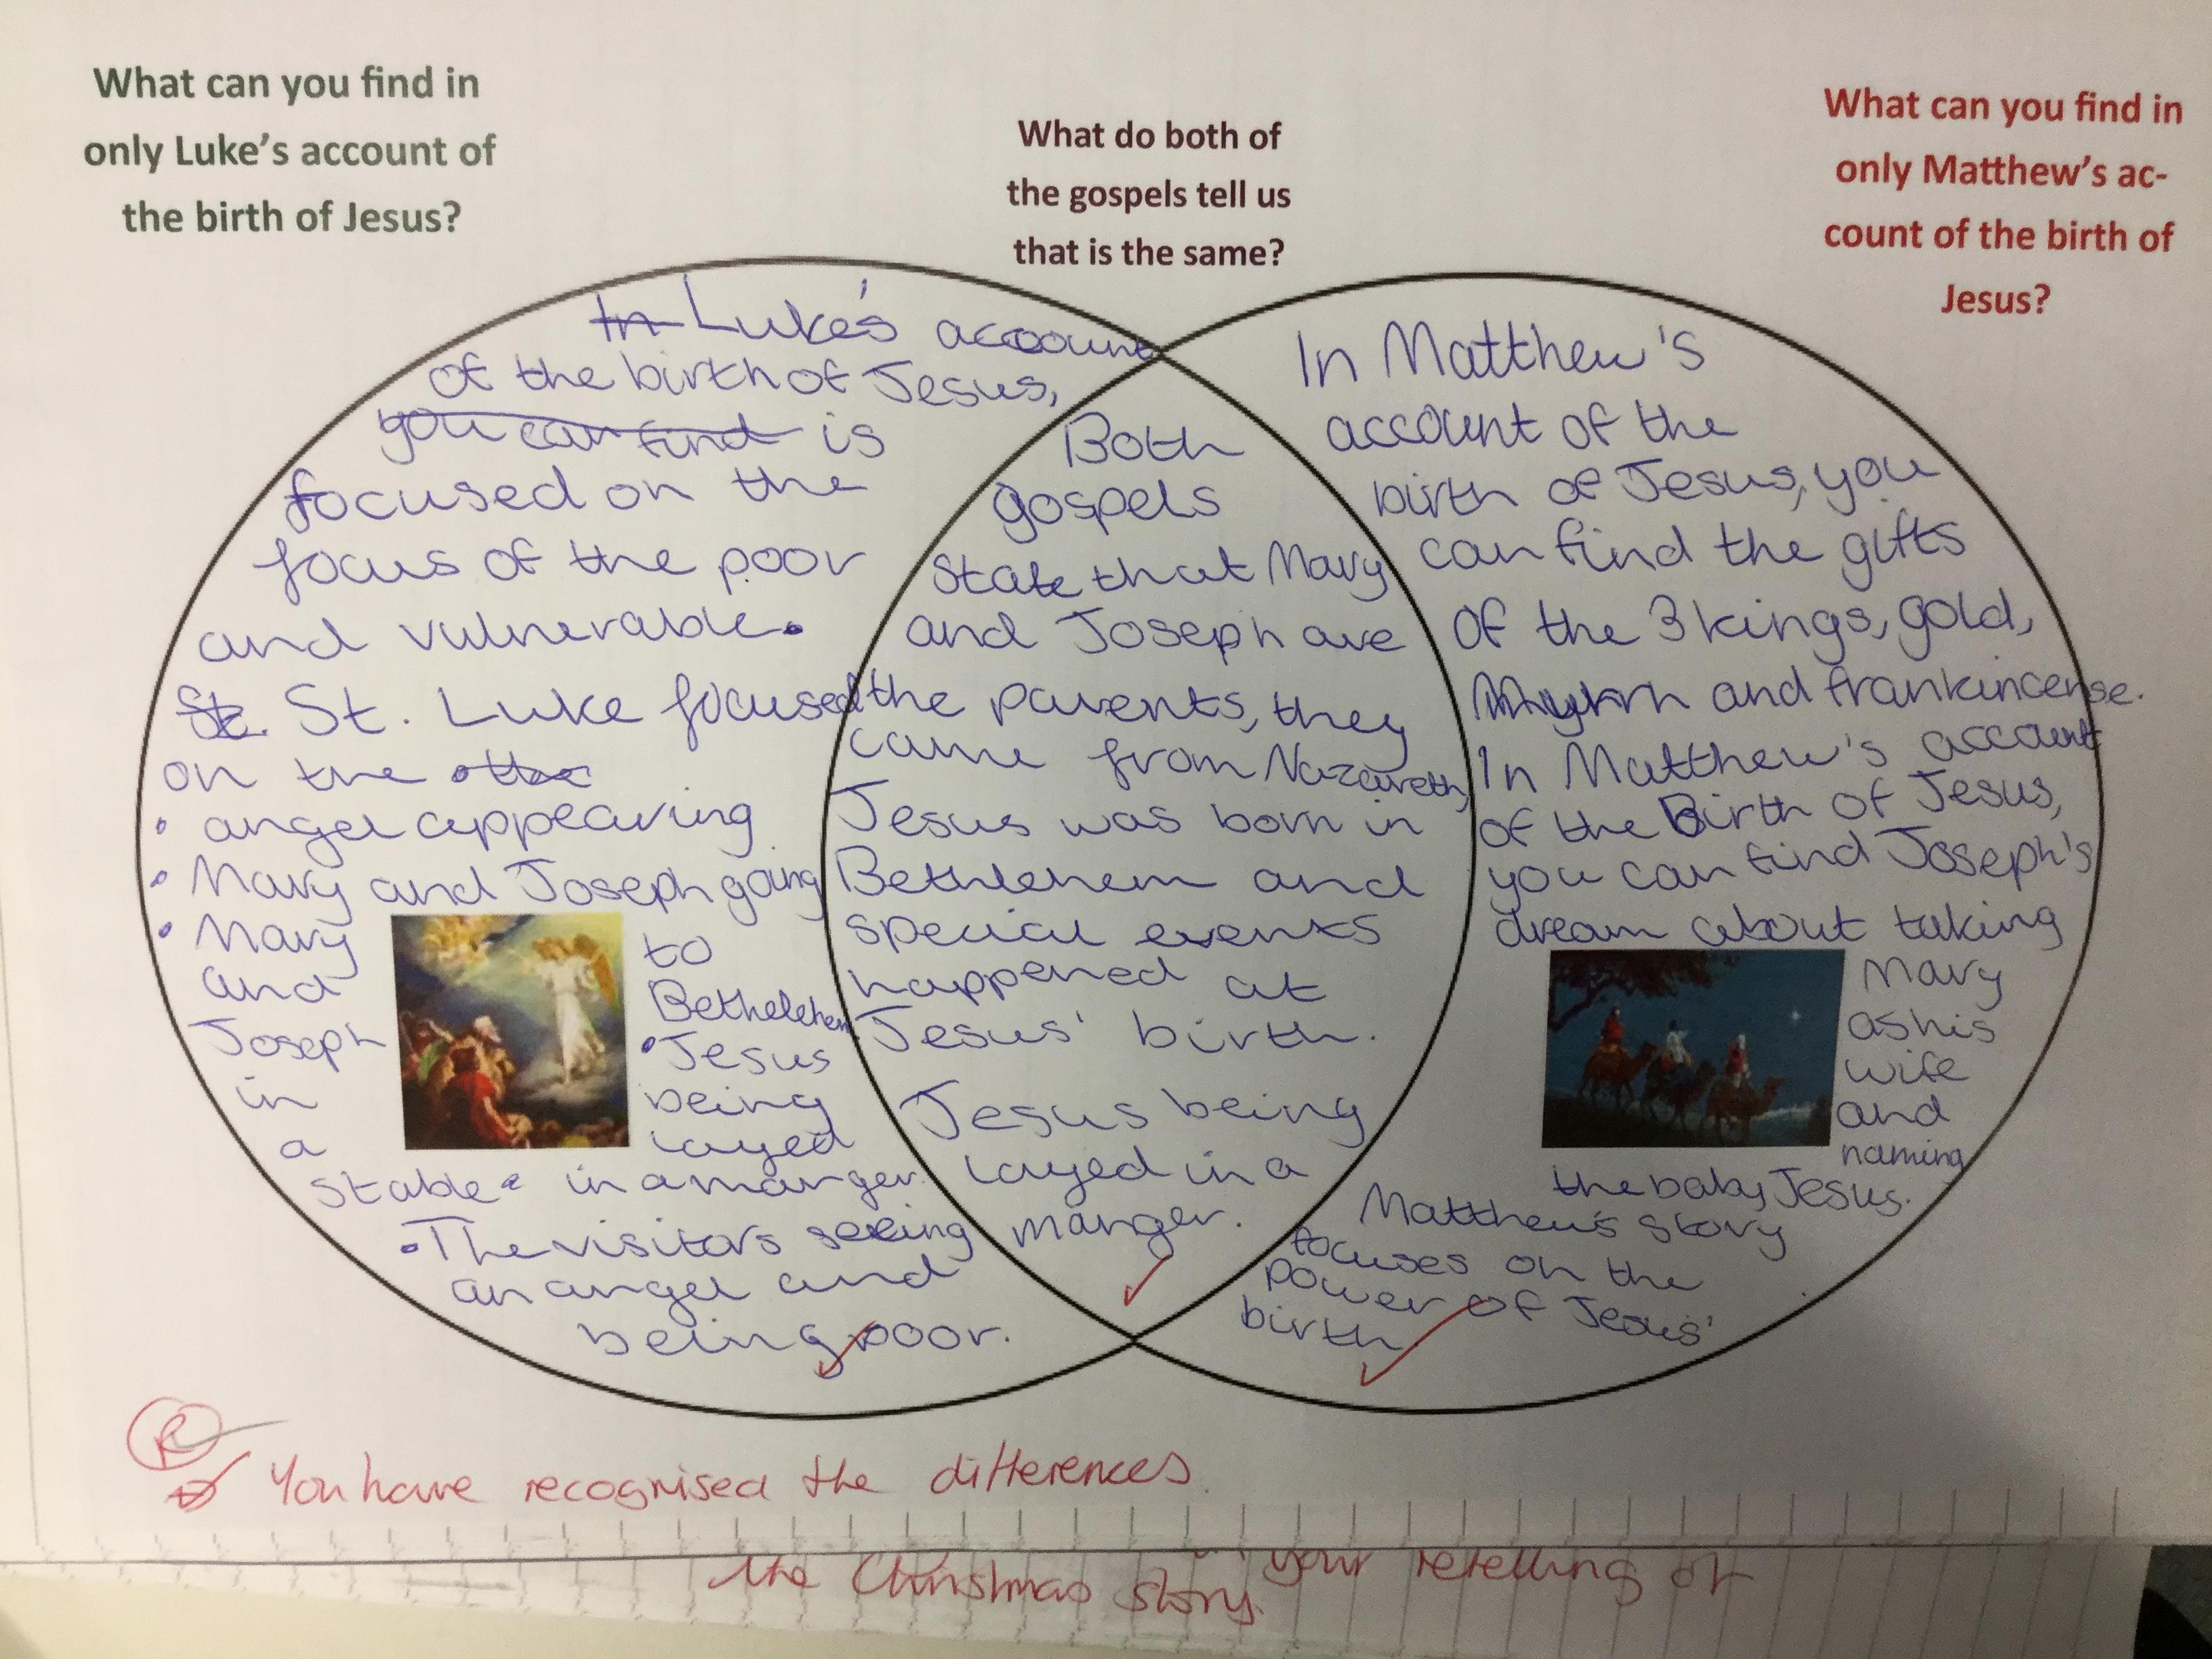 What can you find in
only Luke's account of
the birth of Jesus?
What do both of
the gospels tell us
that is the same?
What can you find in
only Matthew's ac-
count of the birth of
Jesus?
In Luke's account
of the birth of Jesus,
you can find is
focused on the
focus of the poor
and vulnerable.
St. St. Luke focused
on the
• angel appearing
• Mary and Joseph going
to
Bethelehem
• Mary
and
Joseph
in
a
stable
• Jesus
being
layed
in a manger.
• The visitors seeing
an angel and
being poor.
Both
gospels
state that Mary
and Joseph are
the parents, they
came from Nazareth,
Jesus was born in
Bethlehem and
special events
happened at
Jesus' birth.
Jesus being
layed in a
manger.
In Matthew's
account of the
birth of Jesus, you
can find the gifts
of the 3 kings, gold,
and frankincense.
In Matthew's account
of the Birth of Jesus,
you can find Joseph's
dream about taking
Mary
as his
wife
and
naming
the baby Jesus.
Matthew's story
focuses on the
power of Jesus'
birth
R
You have recognised the differences.
your retelling of
the Christmas story.